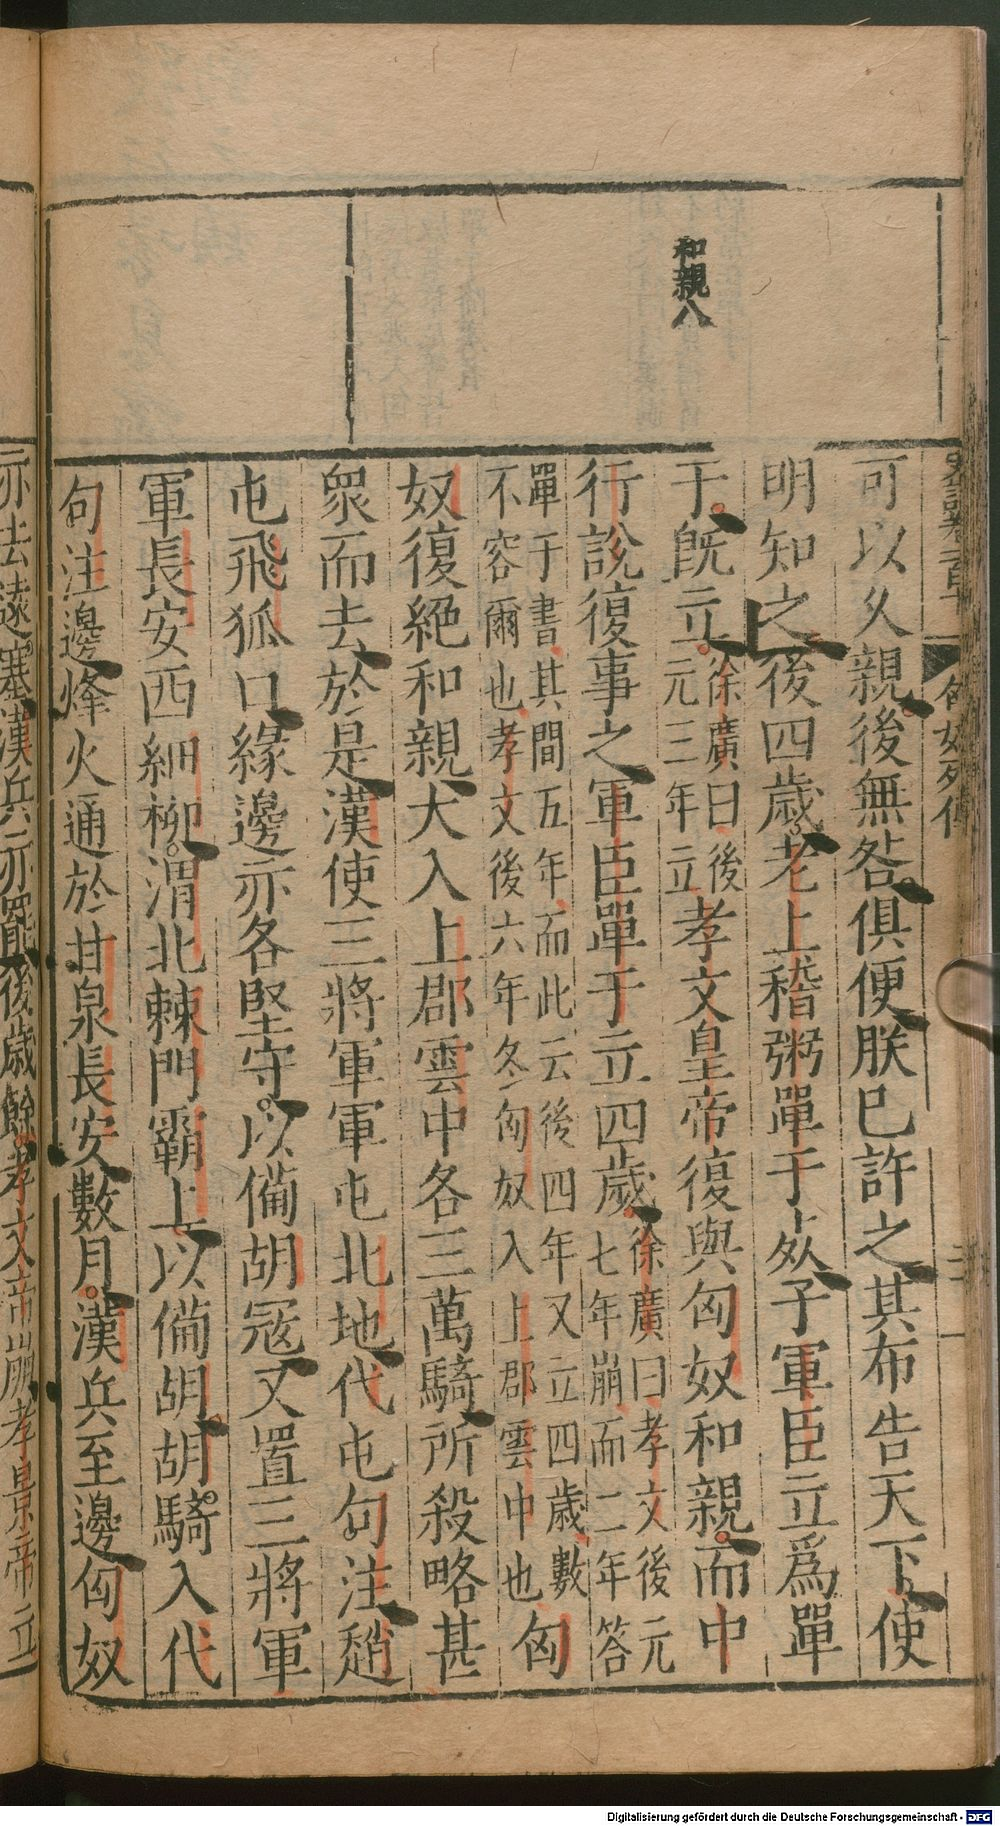 和親八
史記卷一百十
匈奴列傳
可以久親後無咎俱便朕已許之其布告天下使
明知之後四歲老上稽粥單于死子軍臣立爲單
于既立徐廣曰後元三年立孝文皇帝復與匈奴和親而中
行說復事之軍臣單于立四歲徐廣曰孝文後元七年崩而二年答
單于書其間五年而此云後四年又立四歲數不容爾也孝文後六年冬匈奴入上郡雲中也匈
奴復絕和親大入上郡雲中各三萬騎所殺略甚
衆而去於是漢使三將軍軍屯北地代屯句注趙
屯飛狐口緣邊亦各堅守以備胡寇又置三將軍
軍長安西細柳渭北棘門霸上以備胡胡騎入代
句注邊烽火通於甘泉長安數月漢兵至邊匈奴
亦去遠塞漢兵亦罷後歲餘孝文帝崩孝景帝立
Digitalisierung gefördert durch die Deutsche Forschungsgemeinschaft - DFG